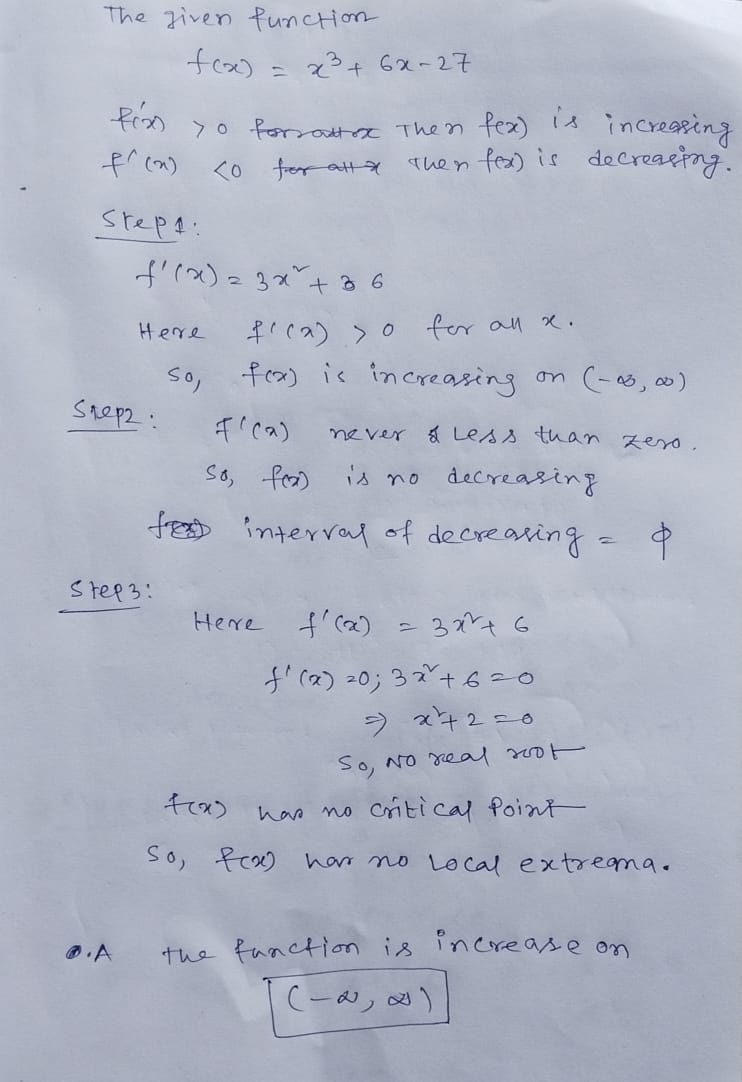 The given function
f(x) = x³ + 6x - 27
f'(x) > 0 for all x Then f(x) is increasing
f'(x) < 0 for all x Then f(x) is decreasing.
Step 1:
f'(x) = 3x² + 3 6
Here f'(x) > 0 for all x.
So, f(x) is increasing on (-∞, ∞)
Step2 :
f'(x) never less than zero.
So, f(x) is no decreasing
f(x) interval of decreasing = φ
Step3:
Here f'(x) = 3x² + 6
f'(x) = 0; 3x² + 6 = 0
⇒ x² + 2 = 0
So, NO real root
f(x) has no critical Point
So, f(x) has no Local extregma.
.A the function is increase on
(-∞, ∞)